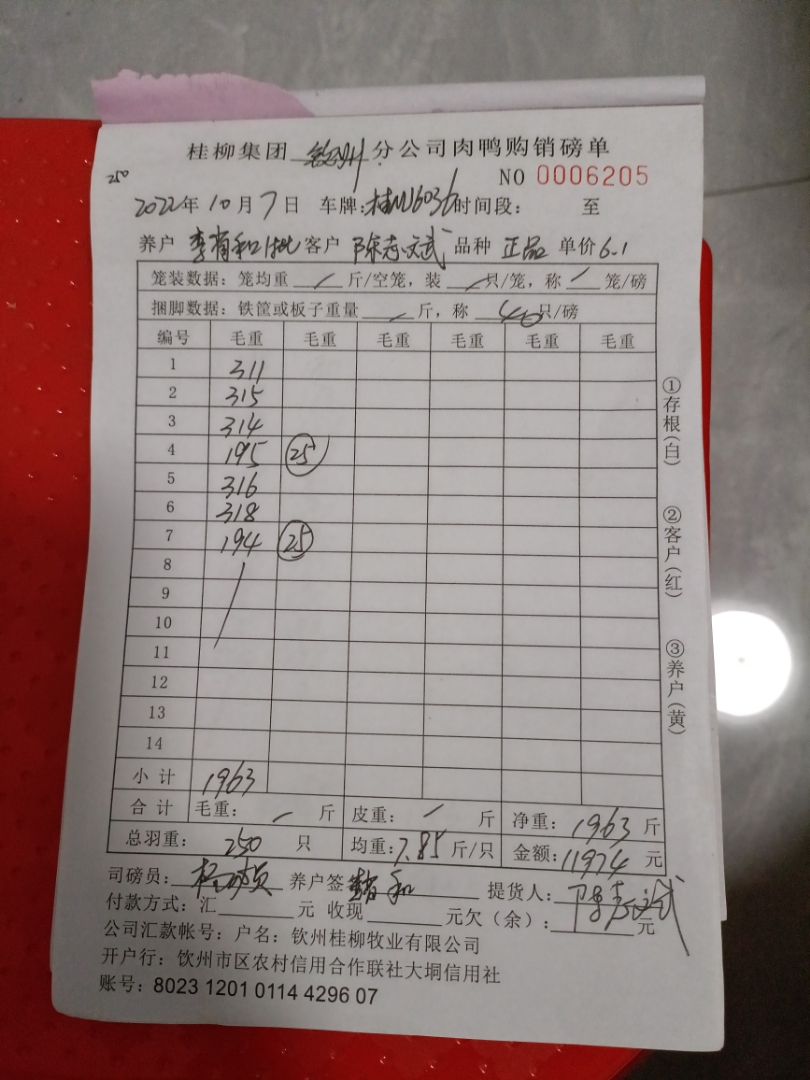 桂柳集团 钦州 分公司肉鸭购销磅单
NO 0006205
250
2022年10月7日 车牌: 时间段: 至
养户 李肖和 客户 陈志文武 品种 正品 单价6.1
笼装数据: 笼均重 / 斤/空笼, 装 / 只/笼, 称 / 笼/磅
捆脚数据: 铁筐或板子重量 / 斤, 称 40 只/磅
编号 毛重 毛重 毛重 毛重 毛重 毛重
1 311
2 315
3 314
4 195 25
5 316
6 318
7 194 25
8
9
10
11
12
13
14
小计 1963
合计 毛重: / 斤 皮重: / 斤 净重: 1963 斤
总羽重: 250 只 均重: 7.85 斤/只 金额: 11974 元
司磅员: 养户签 肖和 提货人: 陈志文武
付款方式: 汇 元 收现 元欠(余): 元
公司汇款帐号: 户名: 钦州桂柳牧业有限公司
开户行: 钦州市区农村信用合作联社大垌信用社
账号: 8023 1201 0114 4296 07
①存根(白)
②客户(红)
③养户(黄)